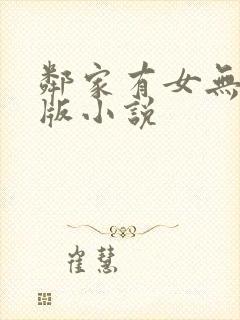 鄰家有女無
版小說
崔慧